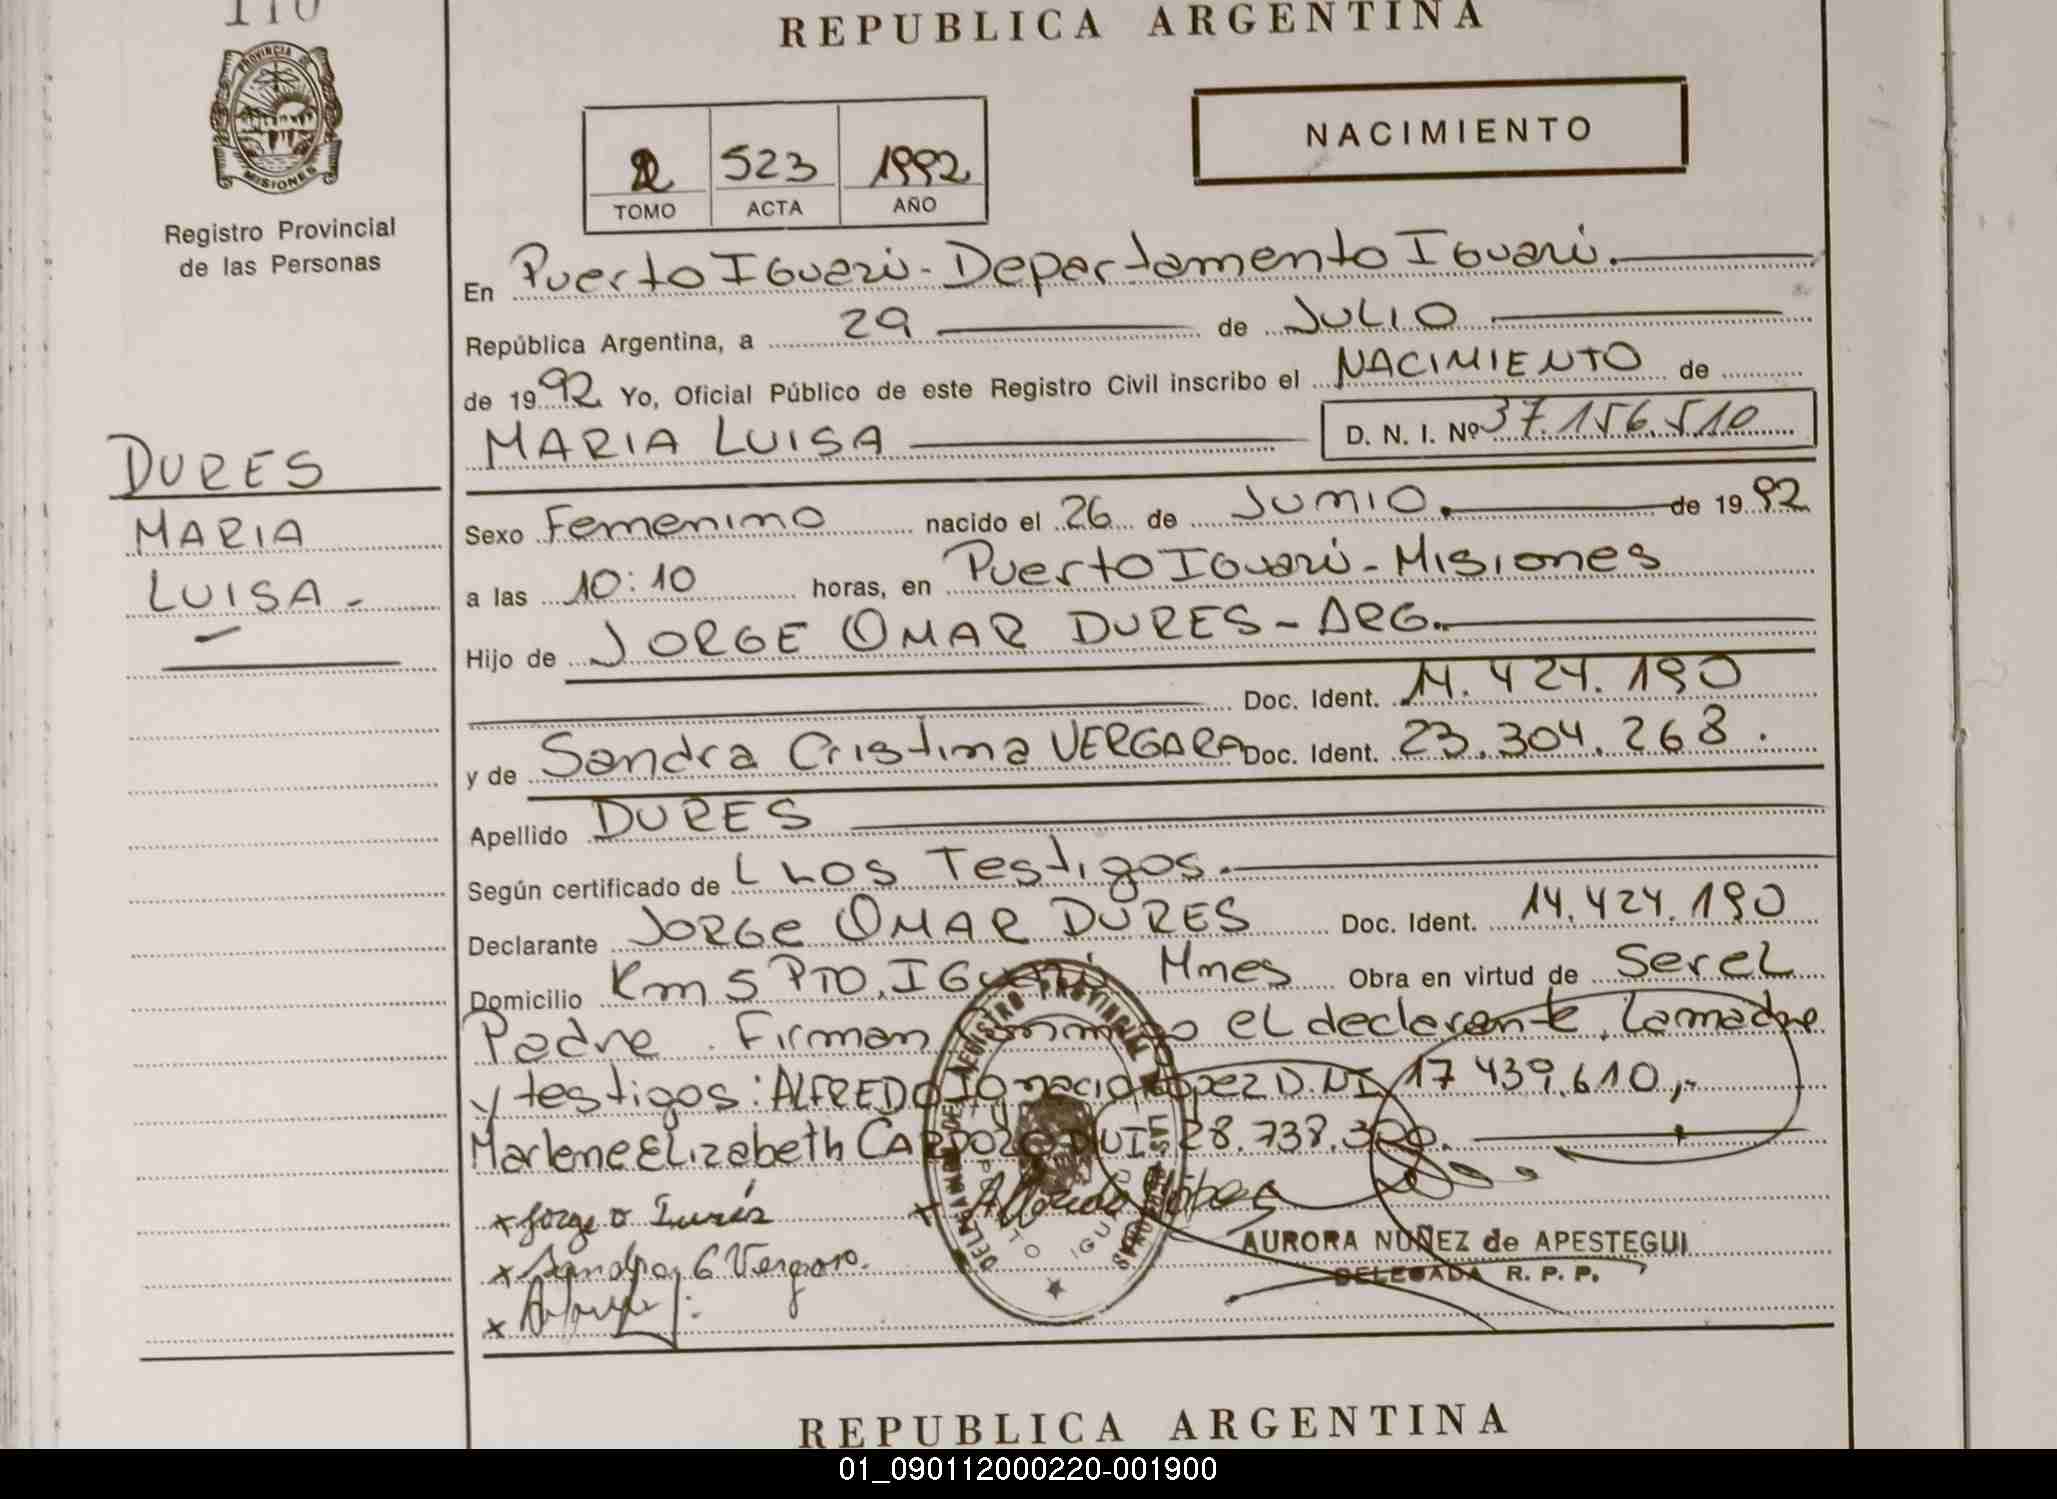 110
REPUBLICA ARGENTINA
PROVINCIA DE
MISIONES
Registro Provincial
de las Personas
NACIMIENTO
2 523 1992
TOMO ACTA AÑO
En Puerto Iguazú - Departamento Iguazú.
República Argentina, a 29 de JULIO
de 1992 Yo, Oficial Público de este Registro Civil inscribo el NACIMIENTO de
MARIA LUISA D. N. I. Nº 37.156.510
DURES
MARIA
LUISA -
Sexo Femenino nacido el 26 de Junio. de 1992
a las 10:10 horas, en Puerto Iguazú - Misiones
Hijo de JORGE OMAR DURES - ARG.
Doc. Ident. 14.424.190
y de Sandra Cristina VERGARA Doc. Ident. 23.304.268.
Apellido DURES
Según certificado de LLOS Testigos.
Declarante JORGE OMAR DURES Doc. Ident. 14.424.190
Domicilio Km 5 PTO. IGUAZÚ Mnes Obra en virtud de Ser el
Padre. Firman conmigo el declarante, la madre
y testigos: ALFREDO Ignacio Lopez D.NI 17 439.610,-
Marlene Elizabeth CARDOZO DNI 28.738.
x Jorge O Durés x Alfredo López
x Sandra C Vergara.
x
REGISTRO PROVINCIAL
DE LAS PERSONAS
PTO IGUAZU
AURORA NUÑEZ de APESTEGUI
DELEGADA R. P. P.
REPUBLICA ARGENTINA
01_090112000220-001900